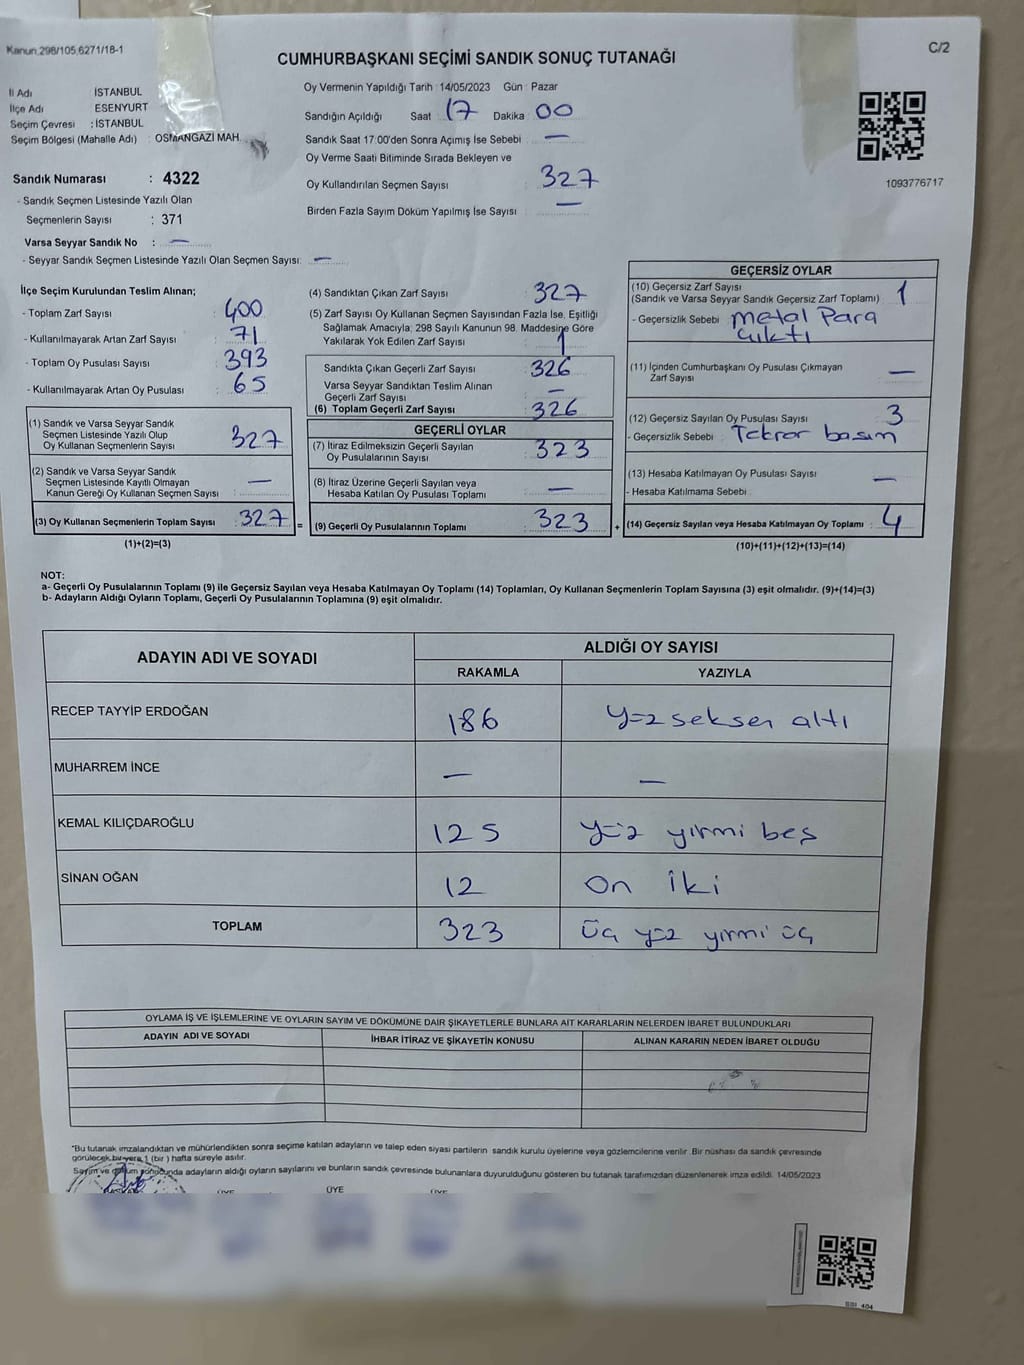 Kanun.298/105,6271/18-1
C/2
CUMHURBAŞKANI SEÇİMİ SANDIK SONUÇ TUTANAĞI
İl Adı İSTANBUL
İlçe Adı ESENYURT
Seçim Çevresi : İSTANBUL
Seçim Bölgesi (Mahalle Adı) : OSMANGAZİ MAH.
Sandık Numarası : 4322
- Sandık Seçmen Listesinde Yazılı Olan
Seçmenlerin Sayısı : 371
Varsa Seyyar Sandık No : —
- Seyyar Sandık Seçmen Listesinde Yazılı Olan Seçmen Sayısı: —
Oy Vermenin Yapıldığı Tarih : 14/05/2023 Gün : Pazar
Sandığın Açıldığı Saat : 17 Dakika : 00
Sandık Saat 17:00'den Sonra Açımış İse Sebebi : —
Oy Verme Saati Bitiminde Sırada Bekleyen ve
Oy Kullandırılan Seçmen Sayısı : 327
Birden Fazla Sayım Döküm Yapılmış İse Sayısı : —
1093776717
İlçe Seçim Kurulundan Teslim Alınan;
- Toplam Zarf Sayısı : 400
- Kullanılmayarak Artan Zarf Sayısı : 71
- Toplam Oy Pusulası Sayısı : 393
- Kullanılmayarak Artan Oy Pusulası : 65
(1) Sandık ve Varsa Seyyar Sandık
Seçmen Listesinde Yazılı Olup
Oy Kullanan Seçmenlerin Sayısı : 327
(2) Sandık ve Varsa Seyyar Sandık
Seçmen Listesinde Kayıtlı Olmayan
Kanun Gereği Oy Kullanan Seçmen Sayısı : —
(3) Oy Kullanan Seçmenlerin Toplam Sayısı : 327 =
(1)+(2)=(3)
(4) Sandıktan Çıkan Zarf Sayısı : 327
(5) Zarf Sayısı Oy Kullanan Seçmen Sayısından Fazla İse, Eşitliği
Sağlamak Amacıyla; 298 Sayılı Kanunun 98. Maddesine Göre
Yakılarak Yok Edilen Zarf Sayısı : 1
Sandıkta Çıkan Geçerli Zarf Sayısı : 326
Varsa Seyyar Sandıktan Teslim Alınan
Geçerli Zarf Sayısı : —
(6) Toplam Geçerli Zarf Sayısı : 326
GEÇERLİ OYLAR
(7) İtiraz Edilmeksizin Geçerli Sayılan
Oy Pusulalarının Sayısı : 323
(8) İtiraz Üzerine Geçerli Sayılan veya
Hesaba Katılan Oy Pusulası Toplamı : —
(9) Geçerli Oy Pusulalarının Toplamı : 323 +
GEÇERSİZ OYLAR
(10) Geçersiz Zarf Sayısı
(Sandık ve Varsa Seyyar Sandık Geçersiz Zarf Toplamı) : 1
- Geçersizlik Sebebi : metal Para
çıktı
(11) İçinden Cumhurbaşkanı Oy Pusulası Çıkmayan
Zarf Sayısı : —
(12) Geçersiz Sayılan Oy Pusulası Sayısı : 3
- Geçersizlik Sebebi : Tekrar basım
(13) Hesaba Katılmayan Oy Pusulası Sayısı : —
- Hesaba Katılmama Sebebi :
(14) Geçersiz Sayılan veya Hesaba Katılmayan Oy Toplamı : 4
(10)+(11)+(12)+(13)=(14)
NOT:
a- Geçerli Oy Pusulalarının Toplamı (9) ile Geçersiz Sayılan veya Hesaba Katılmayan Oy Toplamı (14) Toplamları, Oy Kullanan Seçmenlerin Toplam Sayısına (3) eşit olmalıdır. (9)+(14)=(3)
b- Adayların Aldığı Oyların Toplamı, Geçerli Oy Pusulalarının Toplamına (9) eşit olmalıdır.
ADAYIN ADI VE SOYADI ALDIĞI OY SAYISI
RAKAMLA YAZIYLA
RECEP TAYYİP ERDOĞAN 186 yüz seksen altı
MUHARREM İNCE — —
KEMAL KILIÇDAROĞLU 125 yüz yirmi beş
SİNAN OĞAN 12 on iki
TOPLAM 323 üç yüz yirmi üç
OYLAMA İŞ VE İŞLEMLERİNE VE OYLARIN SAYIM VE DÖKÜMÜNE DAİR ŞİKAYETLERLE BUNLARA AİT KARARLARIN NELERDEN İBARET BULUNDUKLARI
ADAYIN ADI VE SOYADI İHBAR İTİRAZ VE ŞİKAYETİN KONUSU ALINAN KARARIN NEDEN İBARET OLDUĞU
*Bu tutanak imzalandıktan ve mühürlendikten sonra seçime katılan adayların ve talep eden siyasi partilerin sandık kurulu üyelerine veya gözlemcilerine verilir. Bir nüshası da sandık çevresinde
görülecek bir yere 1 (bir ) hafta süreyle asılır.
Sayım ve döküm sonucunda adayların aldığı oyların sayılarını ve bunların sandık çevresinde bulunanlara duyurulduğunu gösteren bu tutanak tarafımızdan düzenlenerek imza edildi. 14/05/2023
BAŞKAN ÜYE ÜYE ÜYE